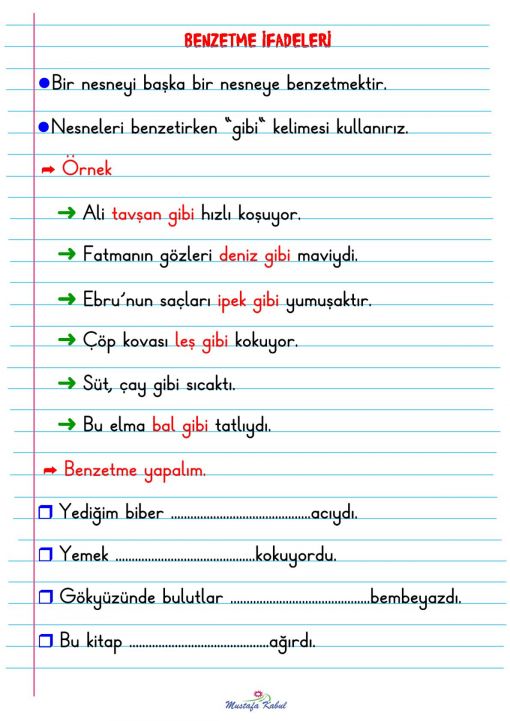 BENZETME İFADELERİ
Bir nesneyi başka bir nesneye benzetmektir.
Nesneleri benzetirken “gibi“ kelimesi kullanırız.
Örnek
Ali tavşan gibi hızlı koşuyor.
Fatmanın gözleri deniz gibi maviydi.
Ebru’nun saçları ipek gibi yumuşaktır.
Çöp kovası leş gibi kokuyor.
Süt, çay gibi sıcaktı.
Bu elma bal gibi tatlıydı.
Benzetme yapalım.
Yediğim biber ...........................................acıydı.
Yemek ...........................................kokuyordu.
Gökyüzünde bulutlar ...........................................bembeyazdı.
Bu kitap ...........................................ağırdı.
Mustafa Kabul